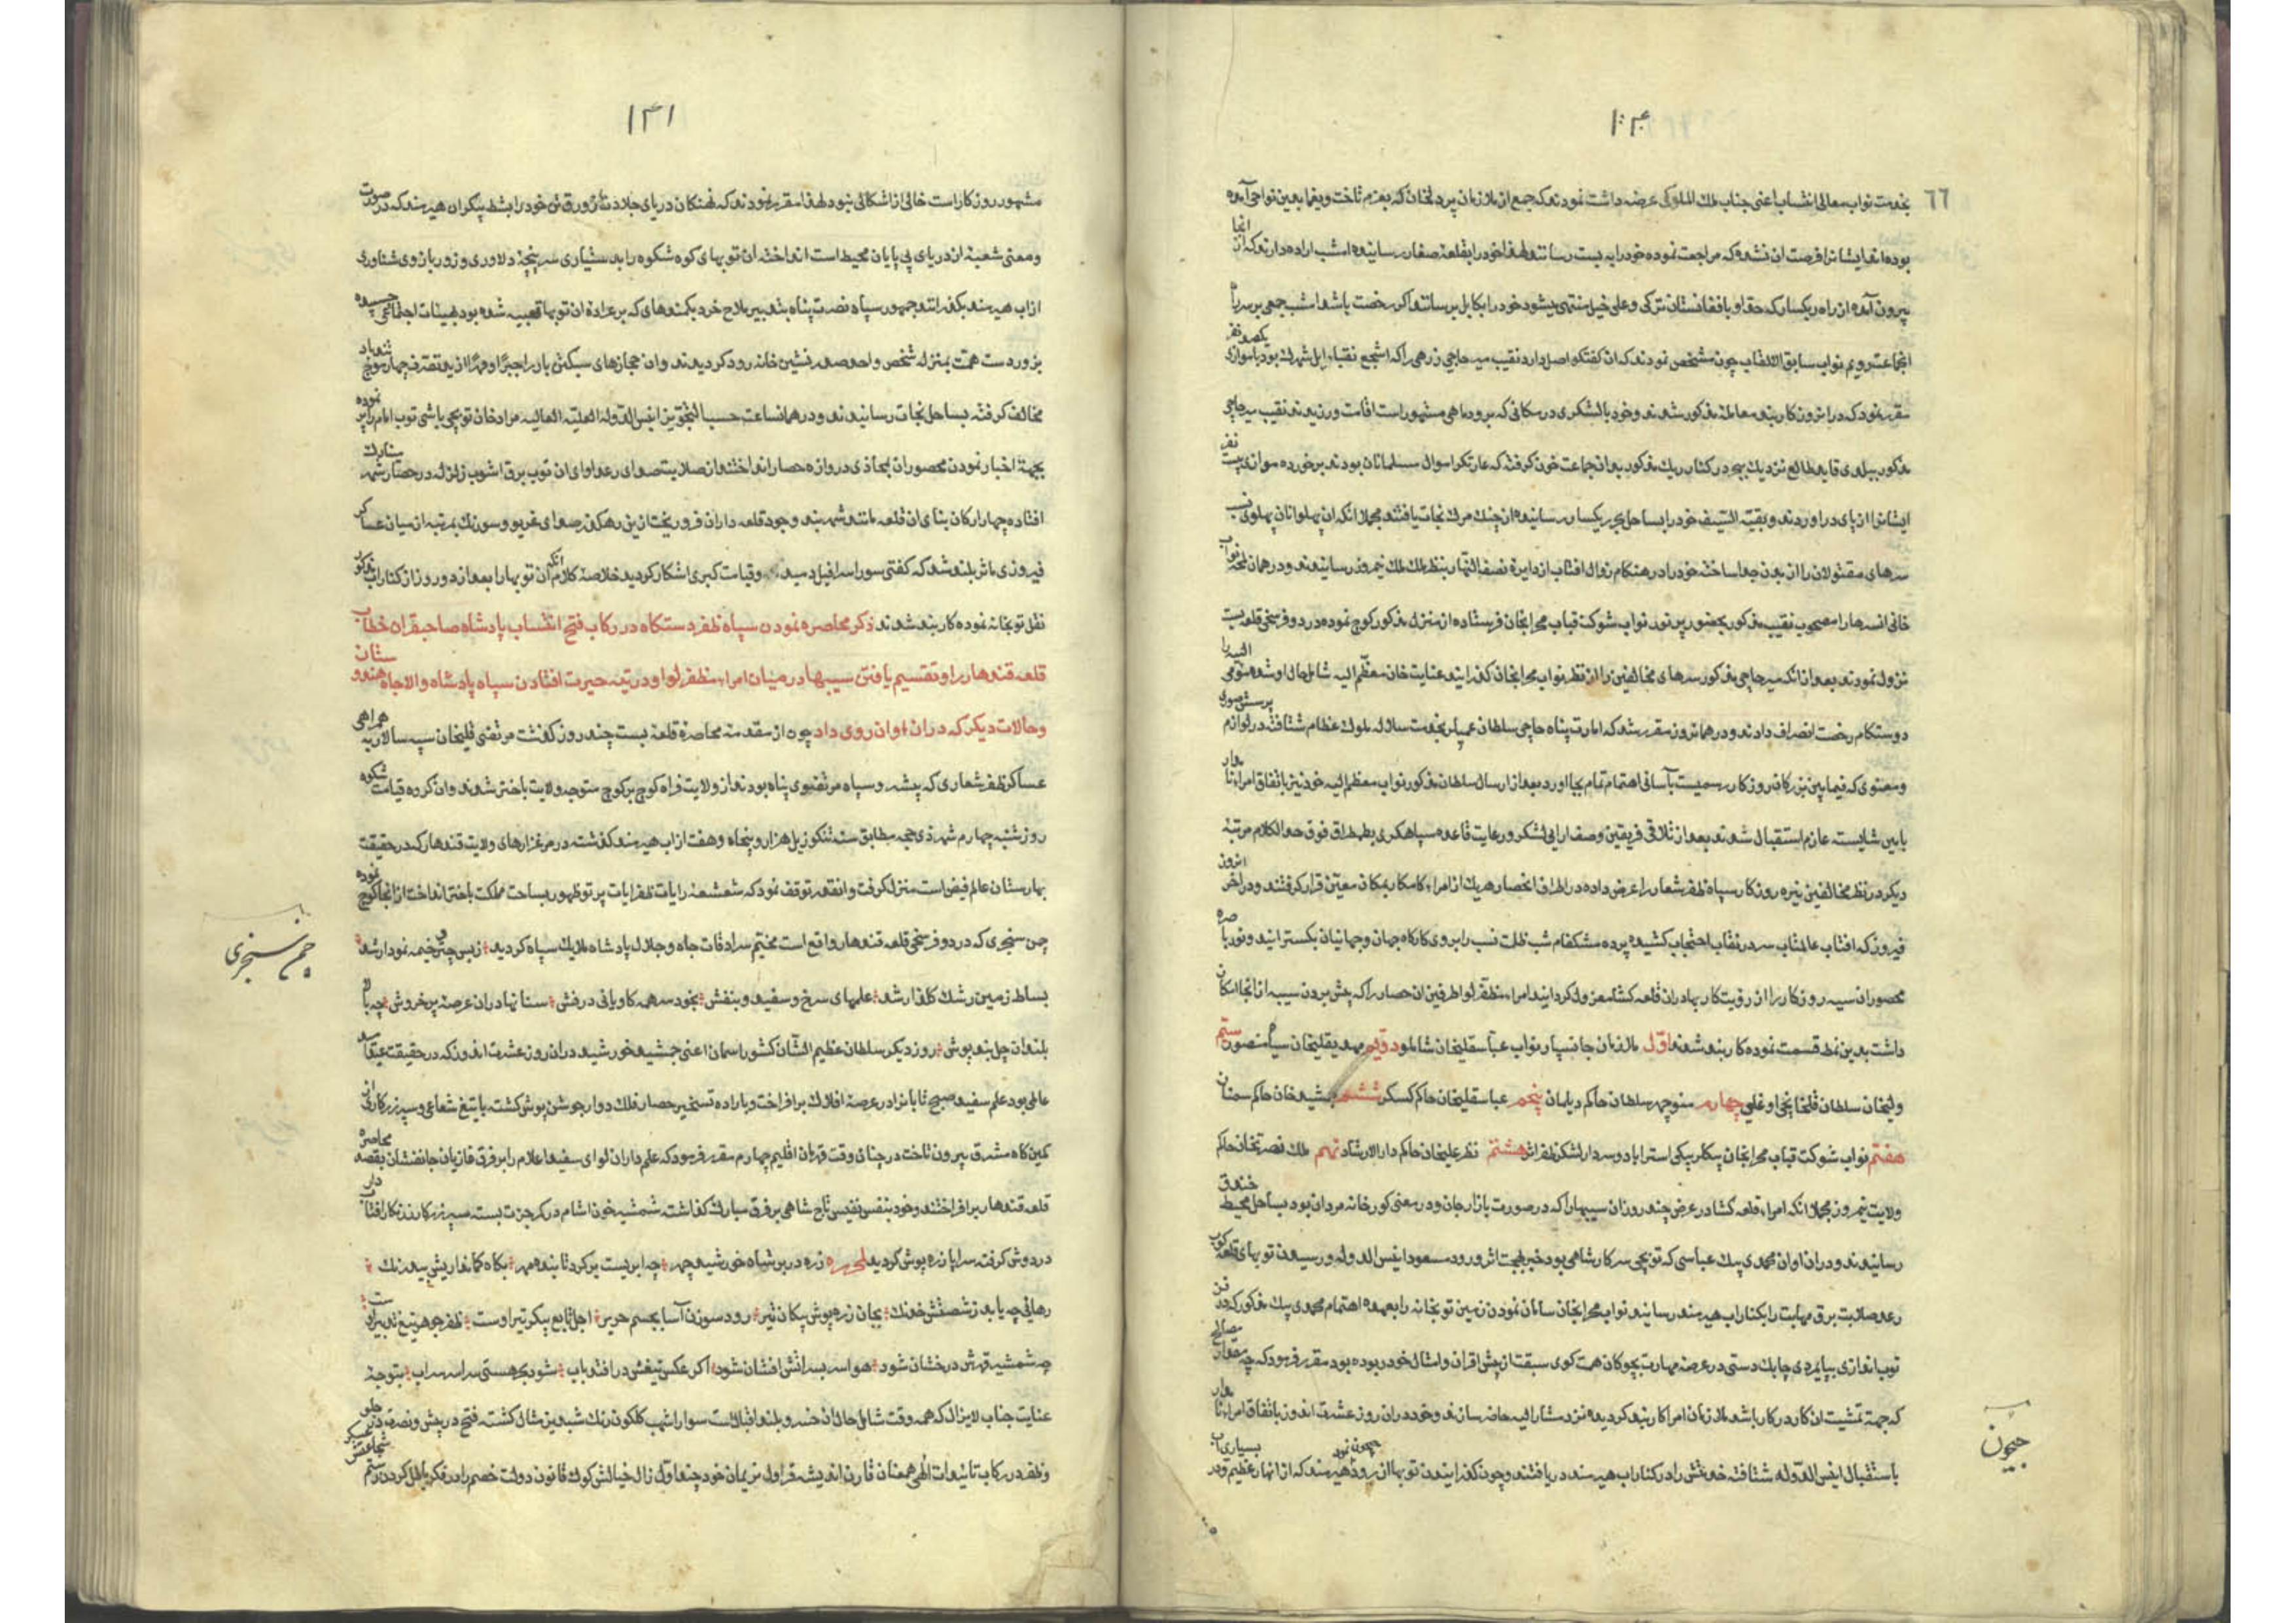 ۱۰۴
۶۶
بخدمت نواب معالی انتساب اعنی جناب ملك الملوکی عرضه داشت نمودند که جمع از ملازمان پردلخان که بعزم تاخت و یغما بعین نواحی آمده
بوده اند ایشانرا فرصت ان نشد که مراجعت نموده خود را به بست رسانند لهذا خود را بقلعه صفار رسانیده امشب اراده دارند که از انجا
بیرون آمده از راه ریکسار که حقا و بافغانستان ترکی و علی خیل منتهی میشود خود را بکابل برسانند اکر رخصت باشد امشب جمعی بر سر راه
انجماعت رویم نواب سابق الالقاب چون مشخص نمودند که ان کفتکو اصل دارد نقیب میر حاجی زرهی را که اشجع نقباء ایل شهرك بود با موازی یکصد نفر
مقرر نمود که در انروز کاربند معامله مذکور شدند و خود با لشکری در مکانی که برود ماهی مشهور است اقامت ورزیدند نقیب میر حاجی
مذکور ببلدی قاید طالع نزدیك بپجر در کنار ریك مذکور بدان جماعت خون کرفته که غارتکر اموال مسلمانان بودند برخورده موازی بیست نفر
ایشانرا از پای در اوردند و بقیة السیف خود را بساحل بحر ریکسار رسانیده از چنك مرك نجات یافتند مجملا انکه ان پهلوانان پهلوی نسب
سرهای مقتولان را از بدن جدا ساخته خود را در هنکام زوال افتاب از دایره نصف النهار بنظر ملك ملك نیمروز رسانیدند و در همان لحظه نواب
خانی انسرها را مصحوب نقیب مذکور بحضور پر نور نواب شوکت قباب محرابخان فرستاده از منزل مذکور کوچ نموده در دو فرسخی قلعه بست
نزول نمودند بعد از انکه میر حاجی مذکور سرهای مخالفین را از نظر نواب محرابخان کذرانید عنایت خان معظم الیه شامل حال او شده متوفی الیه را
دوستکام رخصت انصراف دادند و در همانروز مقرر شد که امارت پناه حاجی سلطان عمیلر بخدمت سلاله ملوك عظام شتافته در لوازم پرسش صوری
و معنوی که فیما بین بزرکان روزکار رسمیست باسانی اهتمام تمام بجا اورد بعد از ارسال سلطان مذکور نواب معظم الیه خود نیز باتفاق امراء نامدار
بایین شایسته عازم استقبال شدند بعد از تلاقی فریقین وصف ارایی لشکر و رعایت قاعده سپاهکری بطمطراق فوق حد الکلام مرتبه
دیکر در نظر مخالفین تیره روزکار سپاه ظفر شعار را عرض داده در اطراف انحصار هریك از امراء کامکار بمکان معین قرار کرفتند و در اخر انروز
فیروز که افتاب عالمتاب سر در نقاب احتجاب کشیده پرده مشکفام شب ظلمت نسب را بر روی کارکاه جهان و جهانیان بکسترانید و نور باصره
محصوران سیه روزکار را از رؤیت کار بهادران قلعه کشا معزول کردانید امراء مظفر لوا طرفین ان حصار را که پیش بردن سیبه از انجا امکان
داشت بدین نمط قسمت نموده کاربند شدند اول ملازمان جانسپار نواب عباسقلیخان شاملو دویم مهدیقلیخان سیاه منصور سیم
ولیخان سلطان قلخانچی اوغلی چهارم منوچهر سلطان حاکم دیلمان پنجم عباسقلیخان حاکم کسکر ششم جمشید خان حاکم سمنان
هفتم نواب شوکت قباب محرابخان بیکلربیکی استراباد و سردار لشکر ظفر اثر هشتم نظر علیخان حاکم دار الارشاد نهم ملك نصرتخان حاکم
ولایت نیمروز مجملا انکه امراء قلعه کشا در عرض چند روز ان سیبها را که در صورت بازار جان و در معنی کورخانه مردان بود بساحل محیط خندق
رسانیدند و در ان اوان محمدی بیك عباسی که توپچی سرکار شاهی بود خبر بهجت اثر ورود مسعود انیس الدوله و رسیدن توپهای قلعه کوب
رعد صلابت برق مهابت را بکنار اب هیرمند رسانید نواب محرابخان سامان نمودن زمین توپخانه را بعهده اهتمام محمدی بیك مذکور که در فن
توپ اندازی بپایمردی چابك دستی در عرصه مهارت بچوکان همت کوی سبقت از پیش اقران و امثال خود ربوده بود مقرر فرمود که چه مقدار مصالح
که جهة تمشیت ان کار در کار باشد ملازمان امرا کاربند کردیده نزد مشار الیه حاضر سازند و خود در ان روز عشرت اندوز باتفاق امراء نامدار
باستقبال انیس الدوله شتافته خدمتش را در کنار اب هیرمند دریافتند و چون کذرانیدن توپها از رود هیرمند که از انهار عظیم و در بسیاری اب
چون نمود
جیحون
۱۴۱
مشهور روزکار است خالی از اشکالی نبود لهذا مقرر نمودند که نهنکان دریای جلادت زورق تن خود را بشط بیکران هیرمند که در صورت
و معنی شعبهٔ از دریای بی پایان محیط است انداخته ان توپهای کوه شکوه را بدستیاری سرپنجهٔ دلاوری و زور بازوی شناوری
از اب هیرمند بکذرانند جمهور سپاه نصرت پناه بتدبیر ملاح خرد بکمندهای که بر عراده ان توپها تعبیه شده بود بهیئات اجتماعی چسبیده
بزور دست همت بمنزله شخص واحد صدرنشین خانه رود کردیدند و ان جمازهای سبکتن باد را جبرا و قهرا از ید تصرف چهار موج تند باد
مخالف کرفته بساحل نجات رسانیدند و در همانساعت حسب التجویز انیس الدوله العلیه العالیه مراد خان توپچی باشی توپ امام را پر نموده
بجهة اخبار نمودن محصوران بمحاذی دروازه حصار انداختند از صلابت صدای رعد اوای ان توپ برق اشوب زلزله در حصار شهر ستارك
افتاده چهار ارکان بنای ان قلعه مانند شهر بند وجود قلعه داران فرو ریخت از ین رهکذر صدای غریو و سورنك بمرتبه از میان عساکر
فیروزی ماثر بلند شد که کفتی سور اسرافیل دمید و قیامت کبری اشکار کردید خلاصه کلام انکه ان توپها را بعد از دو روز از کنار اب مذکور
نقل توپخانه نموده کاربند شدند ذکر محاصره نمودن سپاه ظفر دستکاه در رکاب فتح انتساب پادشاه صاحبقران خطاب
قلعه قندهار را و تقسیم یافتن سیبها در میان امراء مظفر لوا و در تیه حیرت افتادن سپاه پادشاه والاجاه هندوستان
و حالات دیکر که در ان اوان روی داد چون از مقدمه محاصره قلعه بست چند روز کذشت مرتضی قلیخان سپه سالار به همراهی
عساکر ظفر شعاری که پیشرو سپاه مرتضوی پناه بودند از ولایت فراه کوچ بر کوچ متوجه ولایت باختر شدند و ان کروه قیامت شکوه
روز شنبه چهارم شهر ذی حجه مطابق سنه تنکوزیل هزار و پنجاه و هفت از اب هیرمند کذشته در مرغزارهای ولایت قندهار که در حقیقت
بهارستان عالم فیض است منزل کرفت و انقدر توقف نمود که شعشعهٔ رایات ظفر ایات پرتو ظهور بساحت مملکت باختر انداخت از انجا کوچ نموده
چمن سنجری که در دو فرسخی قلعه قندهار واقع است مخیم سرادقات جاه و جلال پادشاه ملایك سپاه کردید ز بس چتر و خیمه نمودار شد
بساط زمین رشك کلزار شد علمهای سرخ و سفید و بنفش بخود سر همه کاویانی درفش سنانها در ان عرصهٔ پر خروش چه بالا
بلندان چل بند پوش روز دیکر سلطان عظیم الشان کشور اسمان اعنی جمشید خورشید در ان روز عشرت اندوز که در حقیقت عید قا سعد
عالمی بود علم سفید صبح تابانرا در عرصهٔ افلاك بر افراخت و باراده تسخیر حصار فلك دوار جوشن پوش کشته با تیغ شعاعی و سپر زرکار از
کمین کاه مشرق بیرون تاخت در چنان وقت قهرمان اقلیم چهارم مقرر فرمود که علم داران لوای سفید اعلام را بر فرق غازیان جانفشان بقصد محاصره
قلعه قندهار بر افراختند و خود بنفس نفیس تاج شاهی بر فرق مبارك کذاشته شمشیر خون اشام در کمر جرءت بسته سپر زرکار زرنکار افتاب دار
در دوش کرفته سراپا زره پوش کردید لمحرره زره در بر شاه خورشید چهر چه ابریست پر کرد تابنده مهر بکاه کمانداریش بیدرنك
رهایی چه یابد ز شصتش خدنك بجان زره پوش پیکان تیر رود سوزن آسا بجسم حریر اجل تابع پیکر تیر اوست ظفر جوهر تیغ تدبیر اوست
چه شمشیر قهرش درخشان شود هوا سربسر اتش افشان شود اکر عکس تیغش در افتد باب شود بحر هستی سراسر سراب بتوجه
عنایت جناب لایزال که همه وقت شامل حال ان خسرو بلند اقبالست سوار اشهب کلکون رنك شبدیز مثال کشته فتح در پیش و نصرت در جلو
و ظفر در رکاب تائیدات الهی همعنان قارن اندیشه قراول نریمان خود چنداول زال خیالش کوك قانون دولت خصم را در فکر باطل کردن رستم شجاعتش عسکر
چمن سنجری